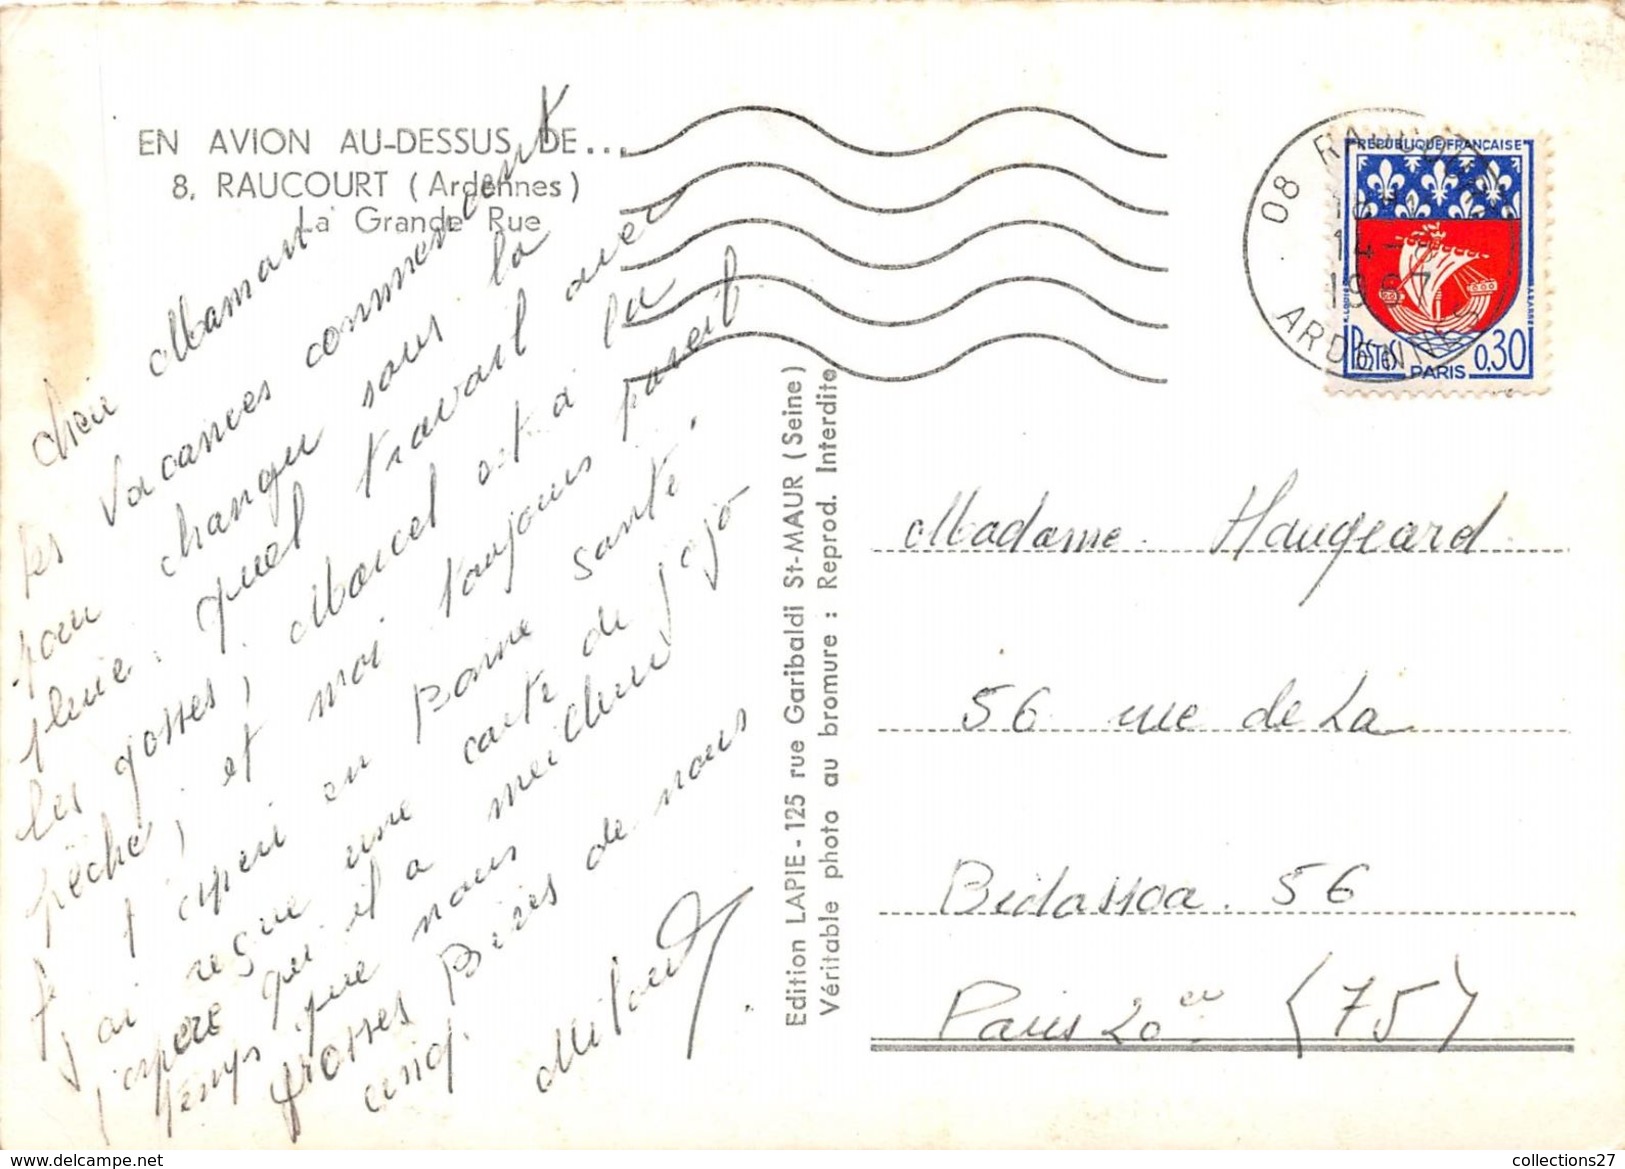 EN AVION AU-DESSUS DE...
8. RAUCOURT (Ardennes)
La Grande Rue
chère Maman
les vacances commencent
pour changer sous la
pluie. quel travail avec
les gosses, Marcel est à la
pêche, et moi toujours pareil.
J'espère en bonne santé.
j'ai reçue une carte de jojo
j'espère qu'il a meilleur
temps que nous
grosses Bises de nous
cinq.
Edition LAPIE - 125 rue Garibaldi St-MAUR (Seine)
Véritable photo au bromure : Reprod. Interdite
08 RAUCOURT
14-
1967
ARDENNES
REPUBLIQUE FRANÇAISE
POSTES
PARIS
0,30
Madame Haugeard
56 rue de La
Bidassoa. 56
Paris 20er (75)
collections27